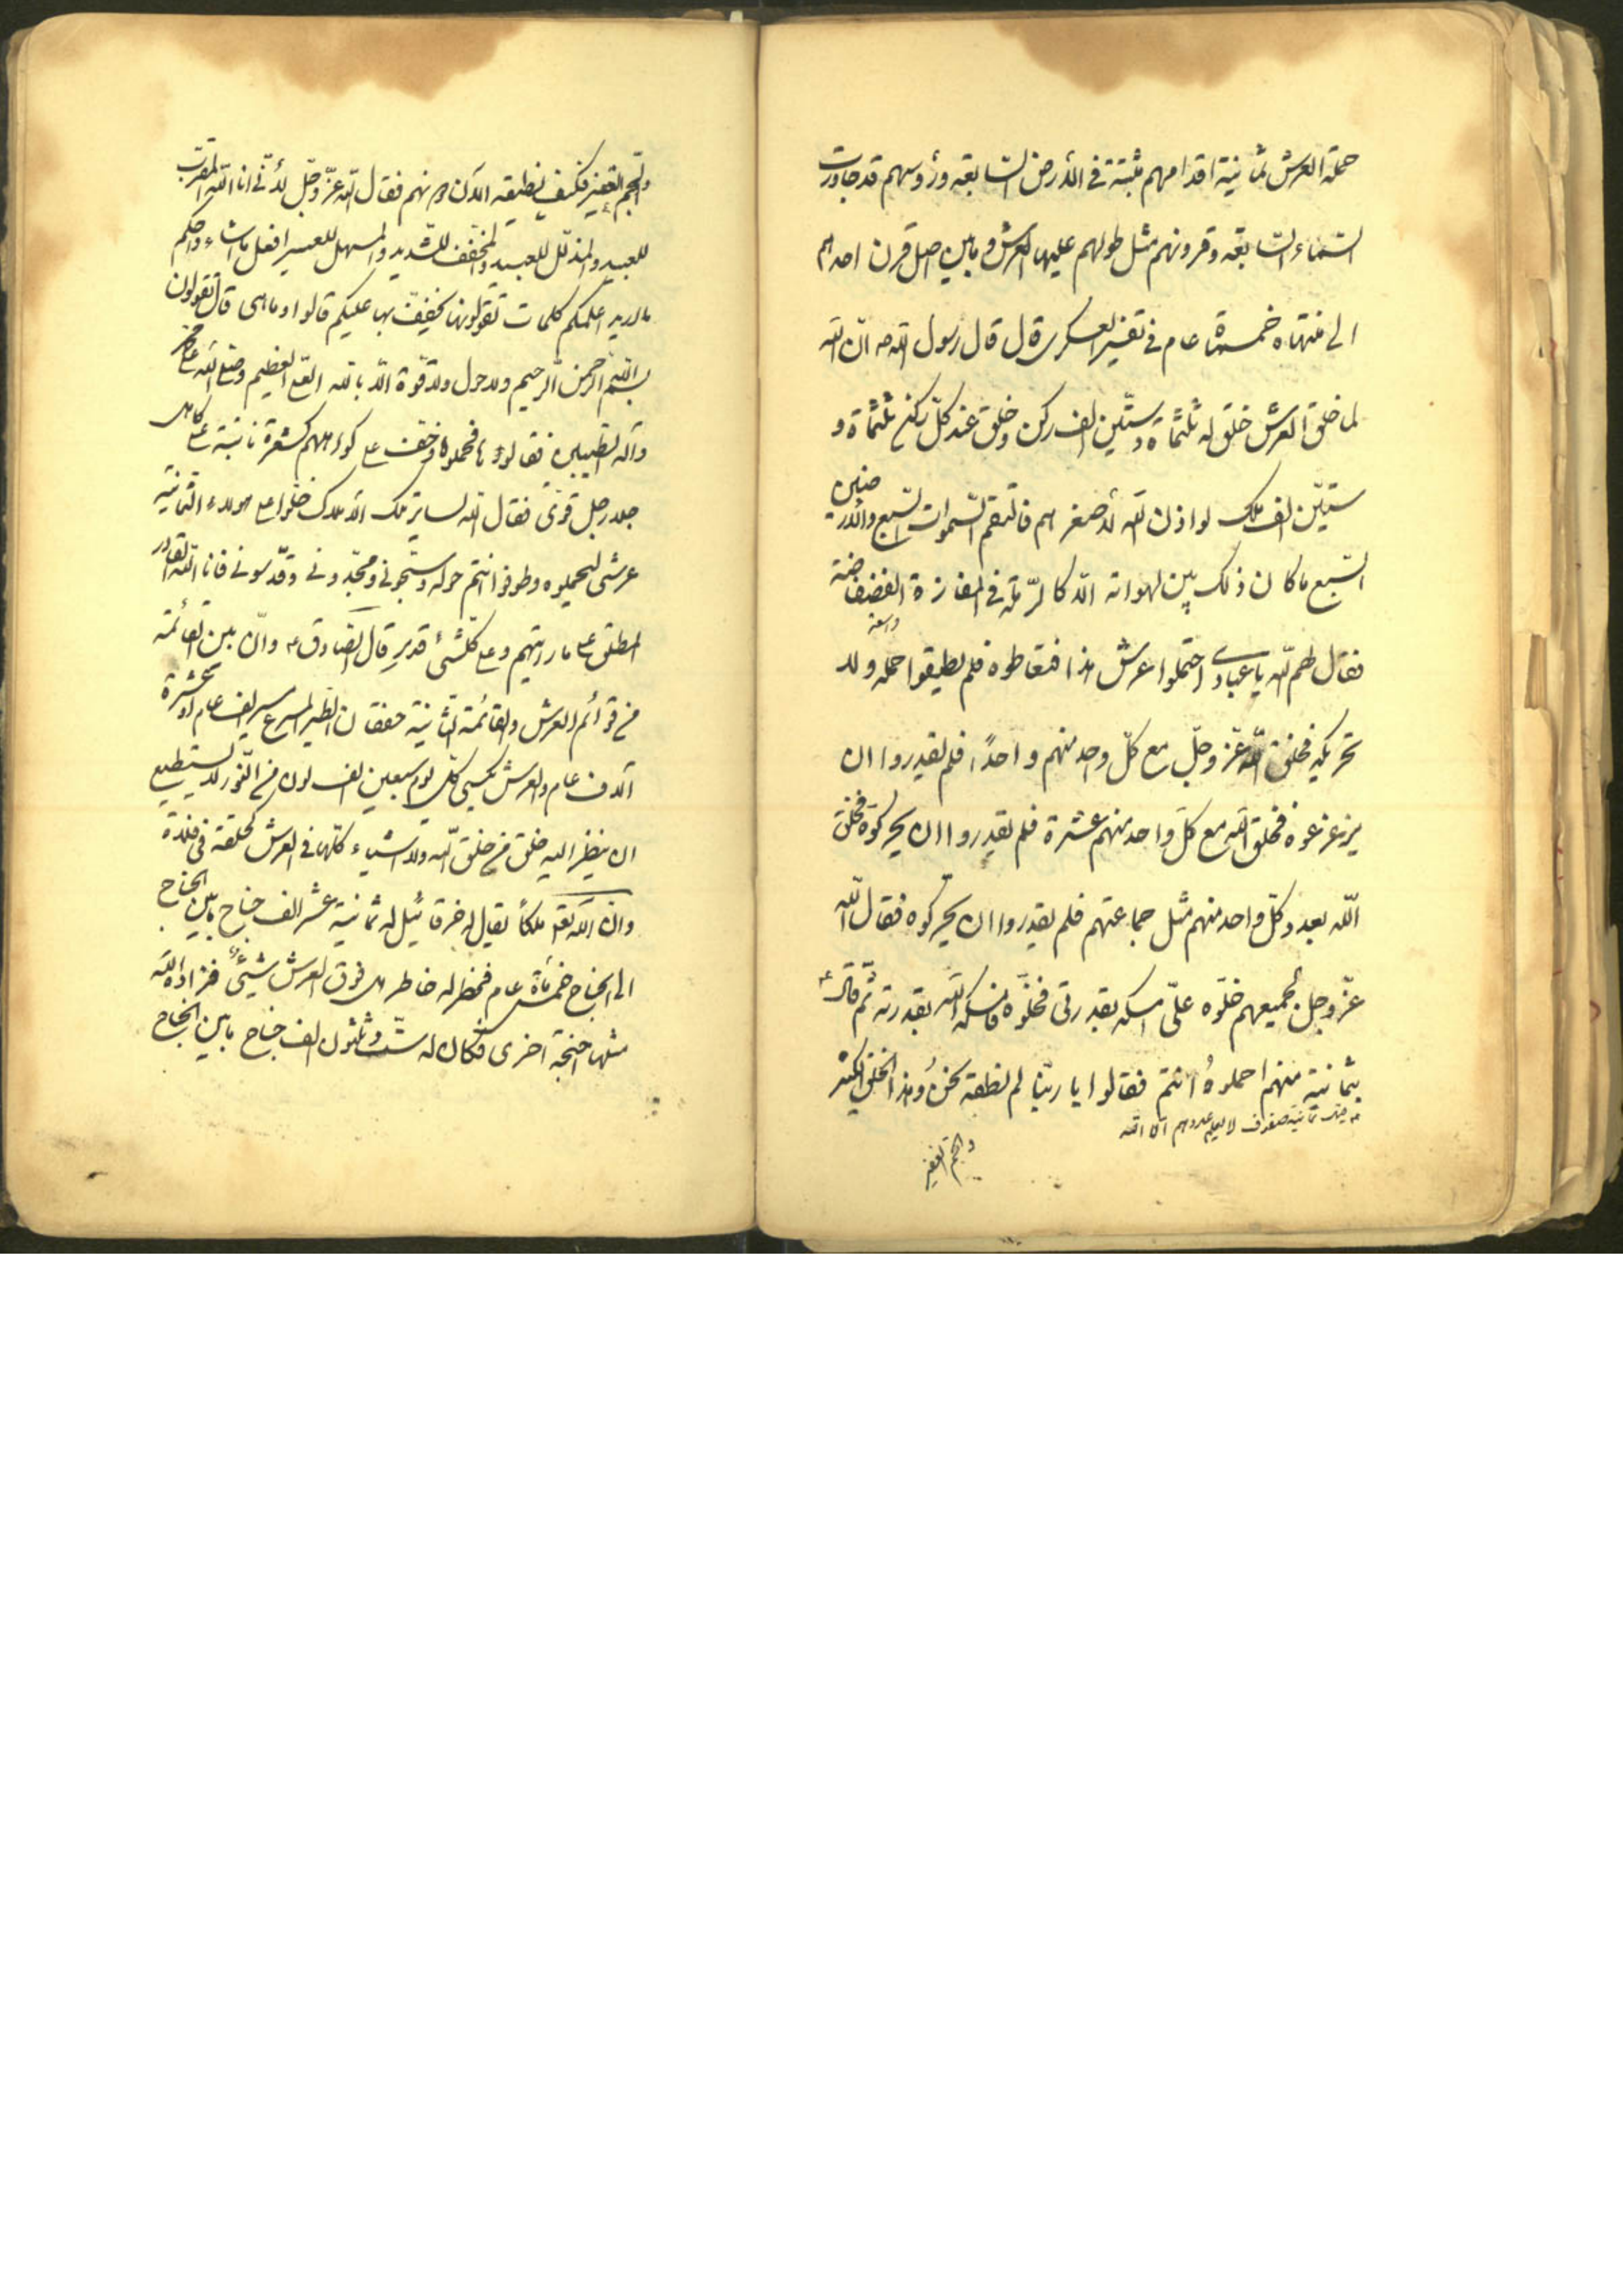 حملة العرش ثمانية اقدامهم مثبتة في الأرض السابعه ورؤسهم قد جاوزت
السماء السابعة وقرونهم مثل طولهم عليها العرش وما بين اصل قرن احدهم
الى منتهاه خمسمائة عام في تفسير العسكرى قال قال رسول الله ص ان الله
لما خلق العرش خلق له ثلثمائة وستين الف ركن وخلق عند كل ركن ثلثمائة و
ستين الف ملك لو اذن الله لأصغرهم فالتقم السموات السبع والأرضين
السبع ما كان ذلك بين لهواته الا كالرملة في المفازة الفضفاضة
واسعة
فقال لهم الله يا عبادى احتملوا عرشى هذا فتعاطوه فلم يطيقوا حمله ولا
تحريكه فخلق الله عز وجل مع كل واحد منهم واحدًا فلم يقدروا ان
يزعزعوه فخلق الله مع كل واحد منهم عشرة فلم يقدروا ان يحركوه فخلق
الله بعدد كل واحد منهم مثل جماعتهم فلم يقدروا ان يحركوه فقال الله
عز وجل لجميعهم خلوه علىّ امسكه بقدرتى فخلوه فامسكه الله بقدرته ثم قال
بثمانية منهم احملوه انتم فقالوا يا ربنا لم نطقه نحن وهذا الخلق الكثير
ثمانية صفوف لا يعلم عددهم الا الله
والجم الغفير
والجم الغفير فكيف نطيقه الآن دونهم فقال الله عز وجل لأنى انا الله المقرب
للبعيد والمذلل للعبيد والمخفف للشديد والمسهل للعسير افعل ما اشاء واحكم
ما اريد اعلمكم كلمات تقولونها يخفف بها عليكم قالوا وما هى قال تقولون
بسم الله الرحمن الرحيم ولا حول ولا قوة الا بالله العلى العظيم وصلى الله على محمد
وآله الطيبين فقالوها فحملوه وخف على كواهلهم كشعرة نابتة على كاهل
جلد رجل قوى فقال الله لسائر تلك الأملاك خلوا على هولاء الثمانية
عرشى ليحملوه وطوفوا انتم حوله وسبحونى ومجدونى وقدسونى فانا الله القادر
المطلق على ما رايتم وعلى كلشئ قدير قال الصادق ع وان بين القائمة
من قوائم العرش والقائمة الثانية خفقان الطير المسرع مسير الف عام او عشرة
آلاف عام والعرش يكسى كل يوم سبعين الف لون من النور لا يستطيع
ان ينظر اليه خلق من خلق الله والاشياء كلها في العرش كحلقة في فلاة
وان لله تعالى ملكاً يقال له خرقائيل له ثمانية عشر الف جناح ما بين الجناح
الى الجناح خمسمائة عام فخطر له خاطر هل فوق العرش شيئ فزاده الله
مثلها اجنحة اخرى فكان له ست وثلثون الف جناح ما بين الجناح